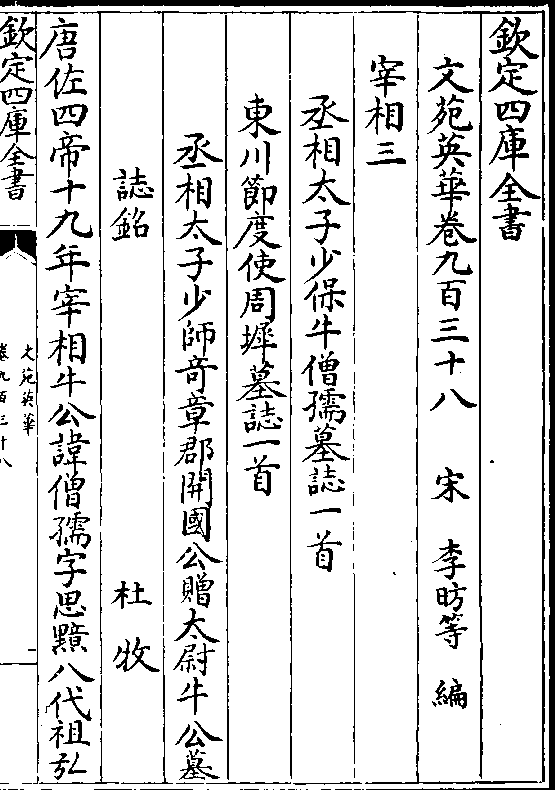 欽定四庫全書
文苑英華卷九百三十八 宋 李昉等 編
宰相三
丞相太子少保牛僧孺墓誌一首
東川節度使周墀墓誌一首
丞相太子少師奇章郡開國公贈太尉牛公墓
誌銘 杜牧
唐佐四帝十九年宰相牛公諱僧孺字思黯八代祖弘
欽定四庫全書
文苑英華
卷九百三十八